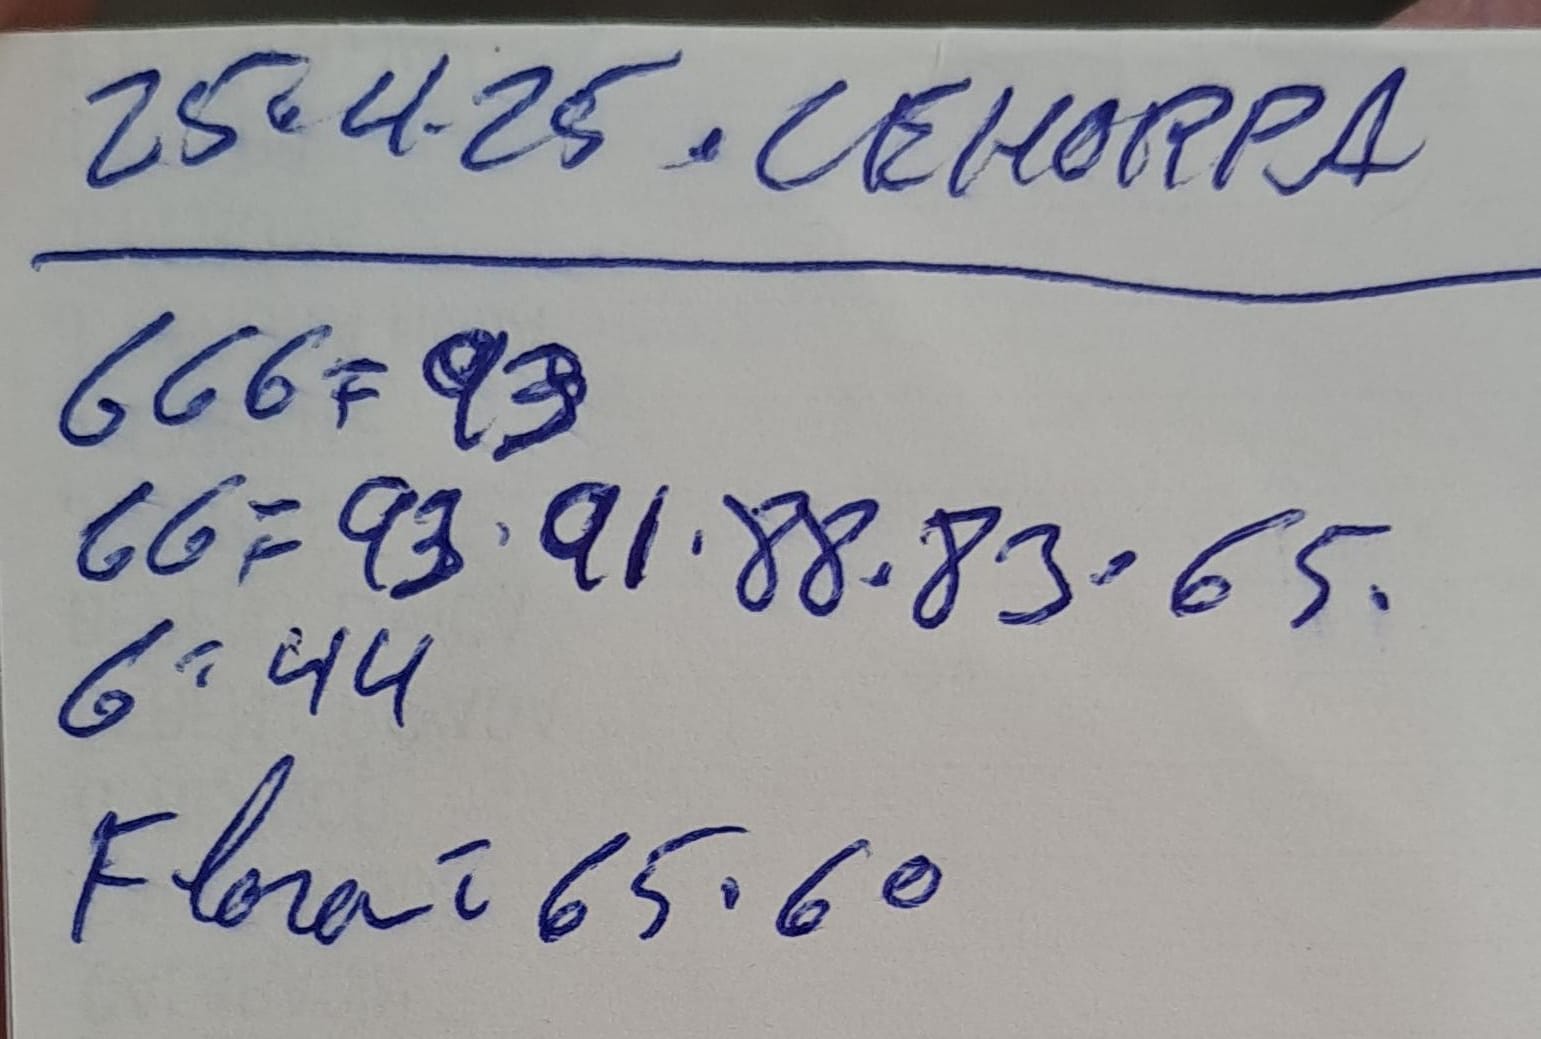 25.4.25. CEHORPA
666 = 93
66 = 93.91.88.83.65.
6 : 44
Flora = 65.60